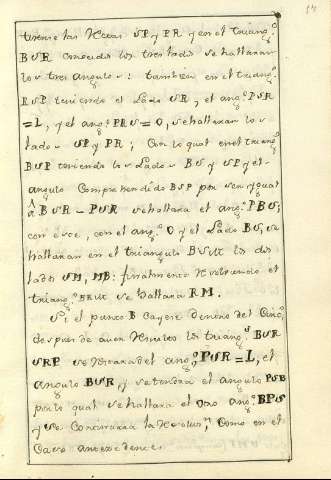 las Rectas SP y PR y en el triang.º
BSR conocidos los tres lados se hallaran
los tres angulos: tambien en el triang.º
RSP teniendo el Lado SR, el ang.º PSR
=L, y el ang.º PRS=O, se hallaran los
lados SP y PR; Con lo qual en el triang.º
BSP teniendo los Lados BS y SP y el
angulo Comprehendido BSP por ser ygual
á BSR-PSR se hallara el ang.º PBS;
con ese, con el ang.º O y el Lado BS, se
hallaran en el triangulo BSM los dos
lados SM, MB: finalmente Resolviendo el
triang.º BRM se hallara RM.
Si el punto B Cayese dentro del Circ.º
despues de aver Resuelto los triang.s BSR
SRP se del ang.º PSR=L, el
angulo BSR y se tendra el angulo PSB
por lo qual se hallara el otro ang.º BPS
y se Continuara la Resoluz.n Como en el
Caso antecedente.